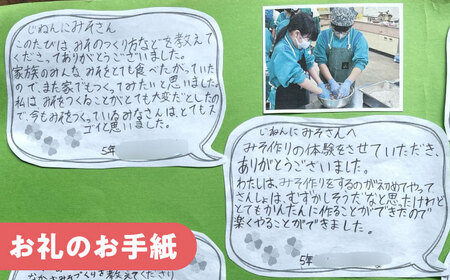 じねんにみそさん
このたびは みそのつくり方などを教えて
くださってありがとうございました。
家族のみんな みそをとても食べたがっていた
ので、また家でもつくってみたいと思いました。
私は みそをつくることがとても大変だとしたの
で、今もみそをつくっているみなさんは、とてもス
ゴイと思いました。
5年
じねんにみそさんへ
みそ作りの体験をさせていただき、
ありがとうございました。
わたしは、みそ作りをするのが初めてやって
さんしょは、むずかしそうだなと思ったけれど
とてもかんたんに作ることができたので
楽くやることができました。
5年
お礼のお手紙
みそづくりを教えてくださり